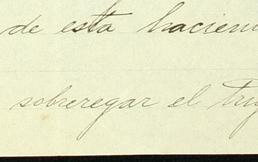 de esta hacien
sobreregar el trig